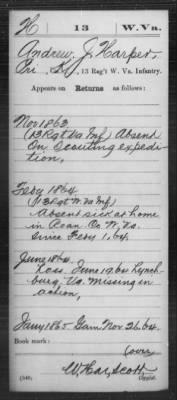 H | 13 | W.Va.
Andrew J. Harper.
Pri., Co. , 13 Reg't W. Va. Infantry.
Appears on Returns as follows:
Nov 1863
(13 Rgt Va Inf) Absent
On Scouting expedi-
tion,
Feby 1864
(13 Rgt W. Va Inf)
Absent sick at home
in Roan Co W. Va.
since Feby 1, 64.
June 1864
Loss. June 19, 64 Lynch-
burg, Va. Missing in
action,
Jany 1865 Gain Nov 26, 64.
Book mark:
(over
W. Har, Scott,
(546)
Copyist.